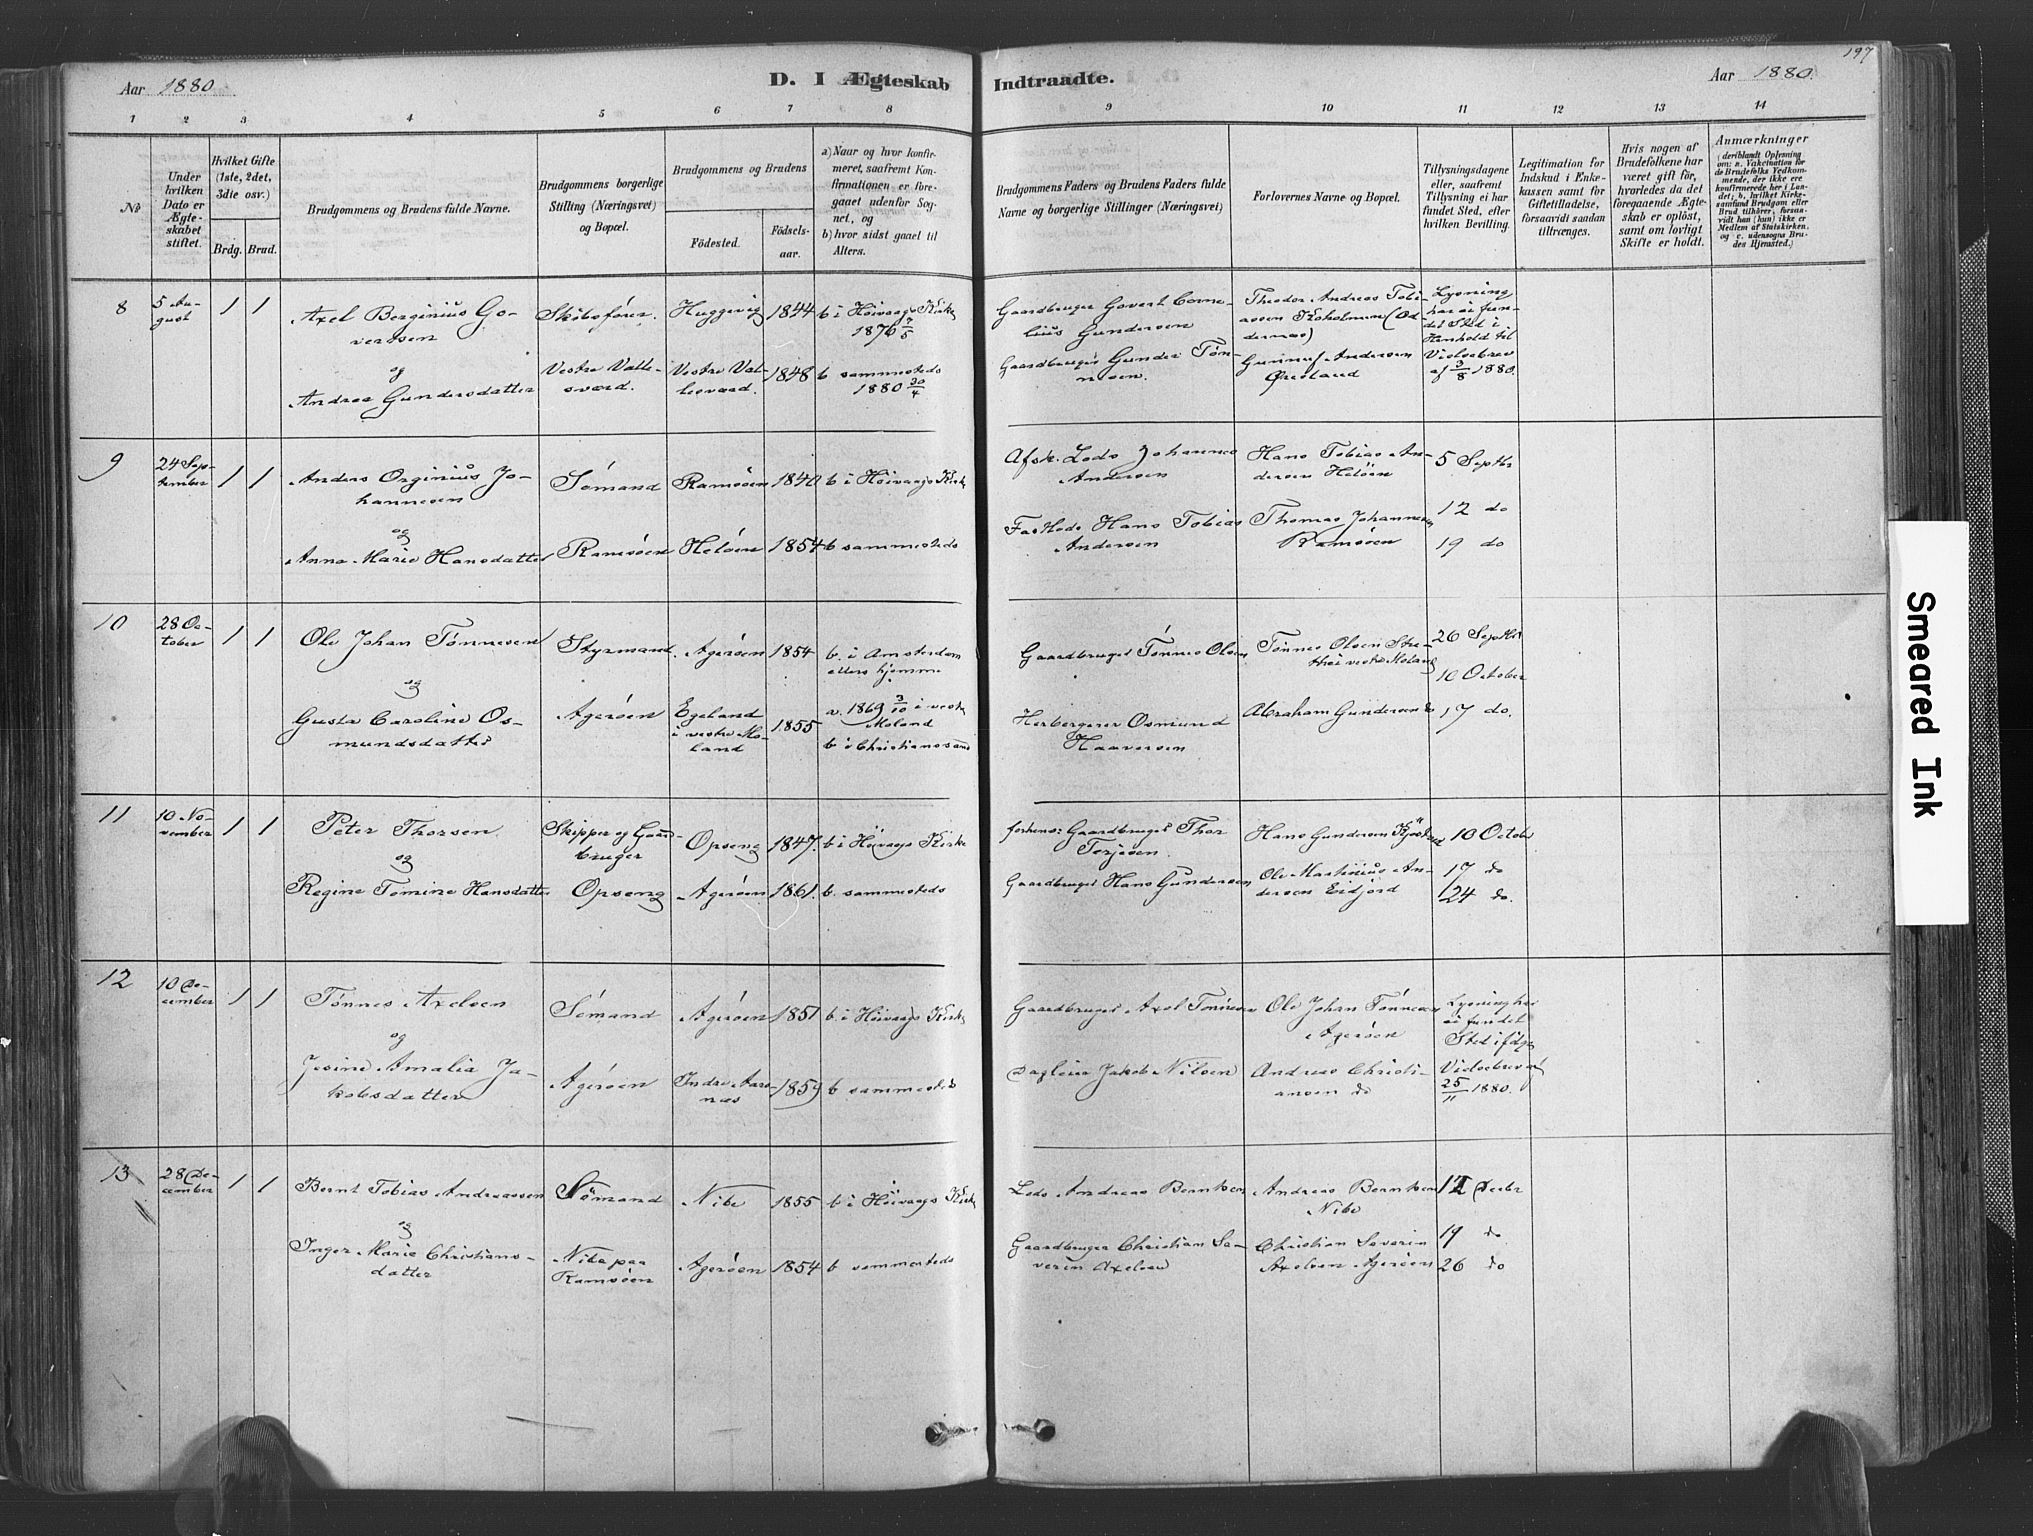 197
Aar 1880.
D. I Ægteskab Indtraadte.
Aar 1880.
1 2 3 4 5 6 7 8 9 10 11 12 13 14
No
Under hvilken Dato er Ægteskabet stiftet.
Hvilket Gifte (1ste, 2det, 3die osv.)
Brdg. Brud.
Brudgommens og Brudens fulde Navne.
Brudgommens borgerlige Stilling (Næringsvei) og Bopæl.
Brudgommens og Brudens
Födested. Födselsaar.
a) Naar og hvor konfirmeret, saafremt Konfirmationen er foregaaet udenfor Sognet, og
b) hvor sidst gaaet til Alters.
Brudgommens Faders og Brudens Faders fulde Navne og borgerlige Stillinger (Næringsvei)
Forlovernes Navne og Bopæl.
Tillysningsdagene eller, saafremt Tillysning ei har fundet Sted, efter hvilken Bevilling.
Legitimation for Indskud i Enkekassen samt for Giftetilladelse, forsaavidt saadan tiltrænges.
Hvis nogen af Brudefolkene har været gift för, hvorledes da det foregaaende Ægteskab er oplöst, samt om lovligt Skifte er holdt.
Anmærkninger
(deriblandt Oplysning om: a. Vakcination for de Brudefolks Vedkommende, der ikke ere konfirmerede her i Landet; b. hvilket Kirkesamfund Brudgom eller Brud tilhörer, forsaavidt han (hun) ikke er Medlem af Statskirken, og c. udensogns Brudes Hjemsted.)
8
5 August
1 1
Axel Berginius Govertsen
og
Andrea Gundersdatter
Skibsfører.
Vestre Vallesværd.
Huggevig 1844
Vestre Vallesværd. 1848
b i Höivaags Kirke
1876 7/5
b sammesteds
1880 30/4
Gaardbruger Govert Cornelius Gundersen
Gaardbruger Gunder Tønnesen.
Theodor Andreas Tobiassen Skoholmen (Oddernæs)
Gunnuf Andersen
Øresland
Lysning har ei fundet Sted i Henhold til Vielsebrev af 3/8 1880.
9
24 September
1 1
Anders Orginius Johannesen
og
Anna Marie Hansdatter
Sömand
Ramsöen
Ramsöen 1840
Helöen 1854
b i Höivaags Kirke
b sammesteds
Afsk. Lods Johannes Andersen
Fast Lods Hans Tobias Andersen
Hans Tobias Andersen Helöen
Thomas Johannesen
Ramsöen
5 Septbr
12 do
19 do
10
28 October
1 1
Ole Johan Tønnesen
og
Gusta Caroline Osmundsdatter
Styrmand.
Agerøen
Agerøen 1854
Egeland i vestre Moland 1855
b. i Amsterdam
ellers hjemme
a. 1869 3/10 i vestre Moland
b i Christianssand
Gaardbruger Tønnes Olsen
Herbergerer Osmund Haaversen
Tønnes Olsen
vestre Moland
Abraham Gundersen do
26 Septbr
10 October
17 do.
11
10 November
1 1
Peter Thorsen
og
Regine Tomine Hansdatter
Skipper og Gaardbruger
Opseng
Opseng 1847.
Agerøen 1861.
b i Höivaags Kirke
b. sammesteds
forhens: Gaardbruger Thor Terjesen.
Gaardbruger Hans Gundersen
Hans Gundersen
Ole Martinius Andersen Eidjord
10 October
17 do
24 do.
12
10 December
1 1
Tønnes Axelsen
og
Jesine Amalia Jakobsdatter
Sömand
Agerøen
Agerøen 1857
Indre Aarsnæs 1859
b. i Höivaags Kirke
b sammesteds
Gaardbruger Axel Tønnesen
Dagleier Jakob Nilsen
Ole Johan Tønnesen
Agerøen
Andreas Christiansen do
Lysning har ei fundet Sted ifølge Vielsebrev af
25/11 1880.
13
28 December
1 1
Bernt Tobias Andreassen
og
Inger Marie Christiansdatter
Sömand
Nibe paa Ramsöen
Nibe 1855
Agerøen 1854
b i Höivaags Kirke
b sammesteds
Lods Andreas Berntsen
Gaardbruger Christian Severin Axelsen
Andreas Berntsen
Nibe
Christian Severin
Axelsen Agerøen
12 Decbr
19 do
26 do
Smeared Ink